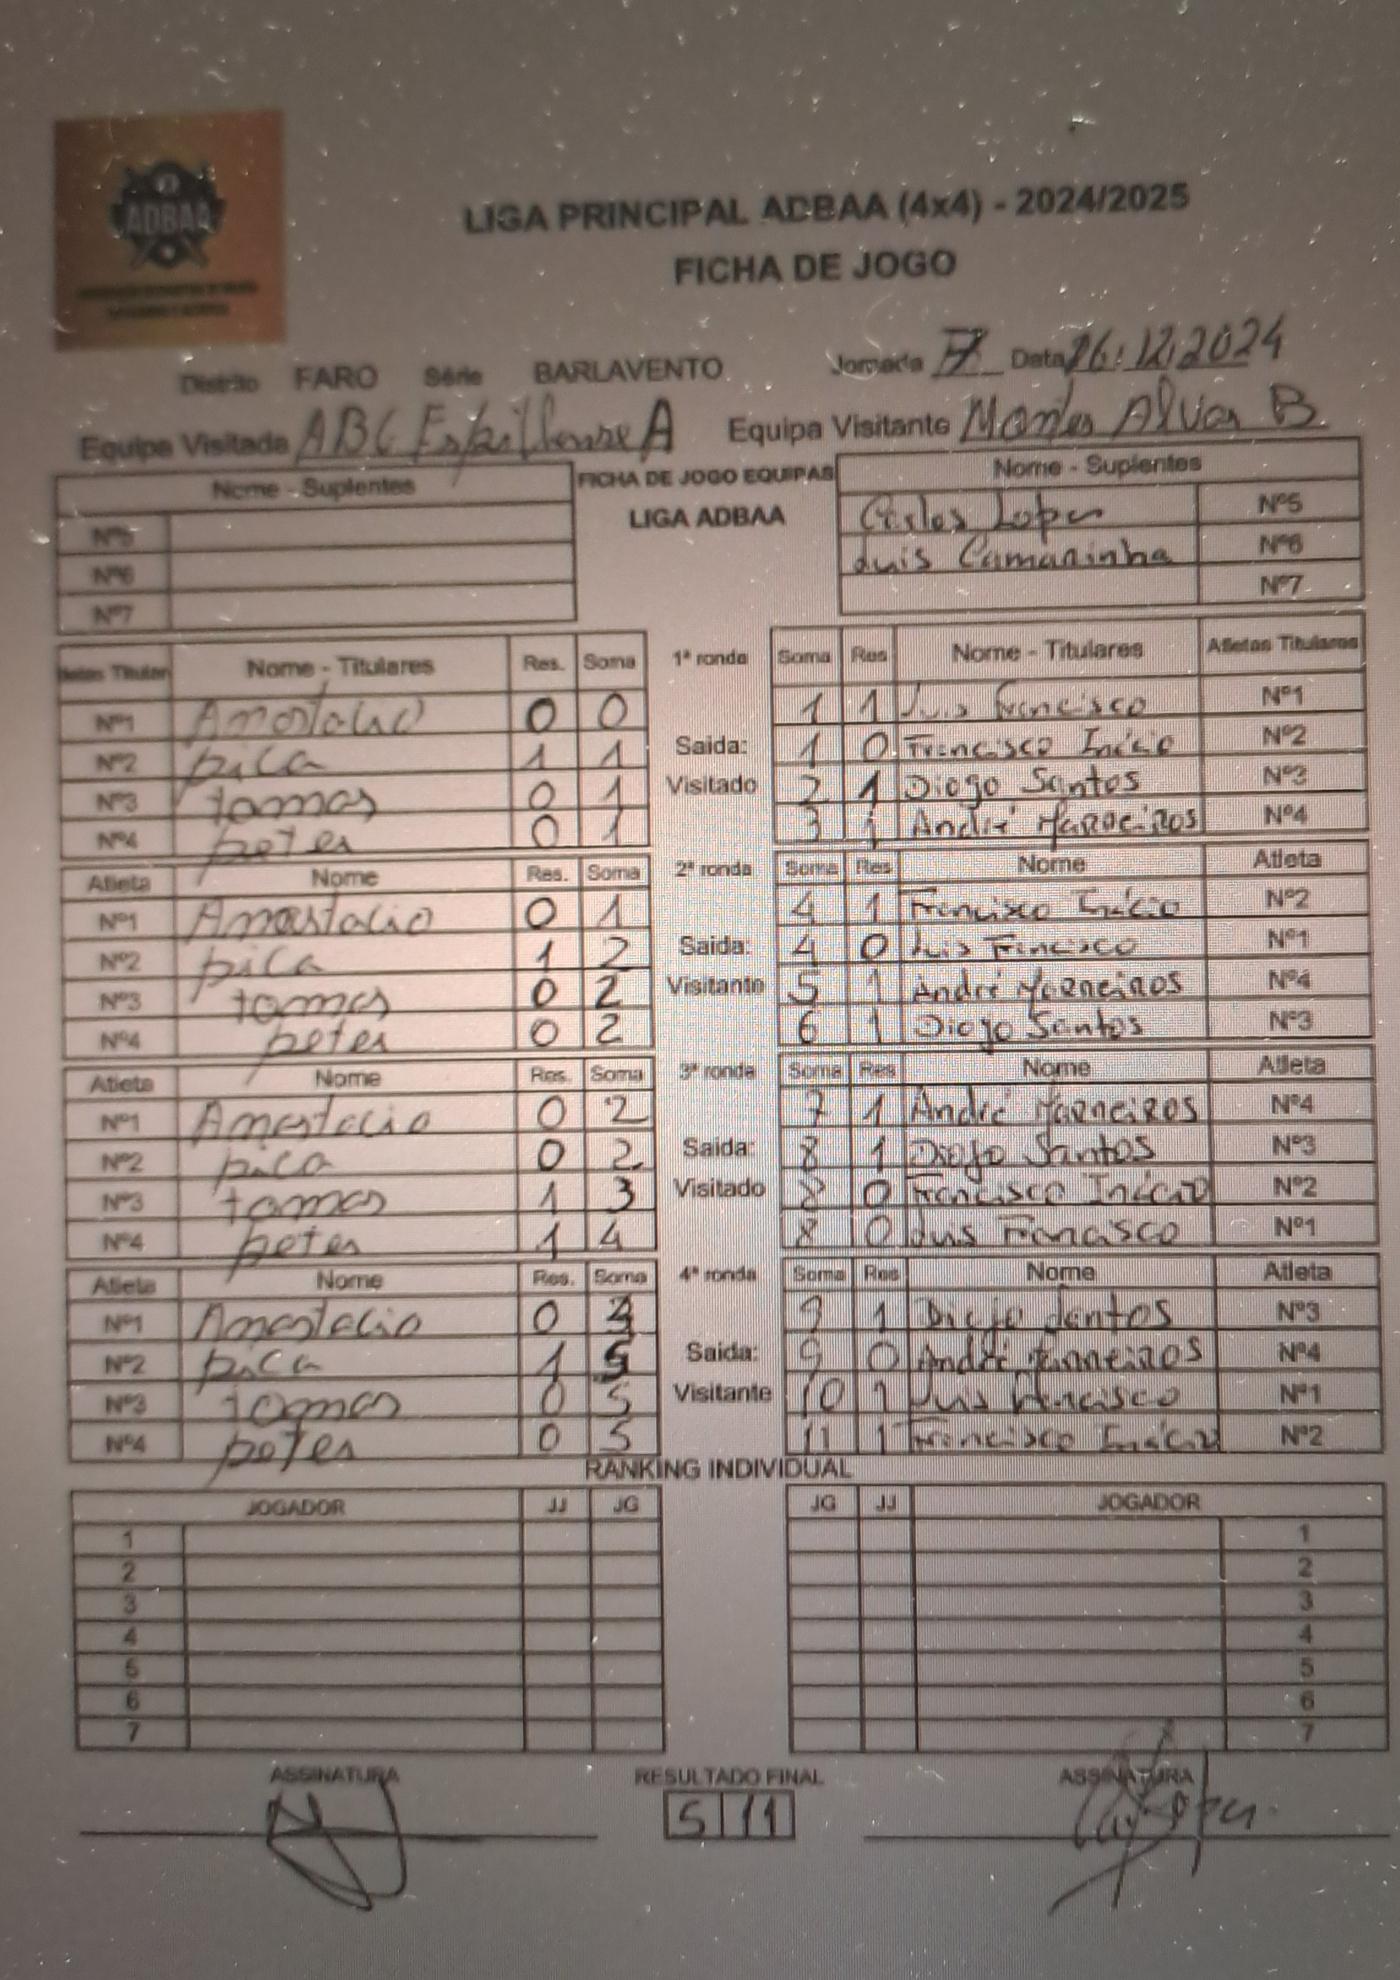 ADBAA
LIGA PRINCIPAL ADBAA (4x4) - 2024/2025
FICHA DE JOGO
Distrito FARO Série BARLAVENTO Jornada 7 Data 26.12.2024
Equipa Visitada ABC A Equipa Visitante Montes Alvor B
Nome - Suplentes FICHA DE JOGO EQUIPAS Nome - Suplentes
LIGA ADBAA
Nº5 Carlos Lopes Nº5
Nº6 Luis Camarinha Nº6
Nº7 Nº7
Atletas Titulares Nome - Titulares Res. Soma 1ª ronda Soma Res Nome - Titulares Atletas Titulares
Nº1 Anastacio 0 0 1 1 Luis Francisco Nº1
Nº2 pica 1 1 Saida: 1 0 Francisco Inácio Nº2
Nº3 tomas 0 1 Visitado 2 1 Diogo Santos Nº3
Nº4 petes 0 1 3 1 André Marneiros Nº4
Atleta Nome Res. Soma 2ª ronda Soma Res Nome Atleta
Nº1 Anastacio 0 1 4 1 Francisco Inácio Nº2
Nº2 pica 1 2 Saida: 4 0 Luis Francisco Nº1
Nº3 tomas 0 2 Visitante 5 1 André Marneiros Nº4
Nº4 petes 0 2 6 1 Diogo Santos Nº3
Atleta Nome Res. Soma 3ª ronda Soma Res Nome Atleta
Nº1 Anastacio 0 2 7 1 André Marneiros Nº4
Nº2 pica 0 2 Saida: 8 1 Diogo Santos Nº3
Nº3 tomas 1 3 Visitado 8 0 Francisco Inácio Nº2
Nº4 petes 1 4 8 0 Luis Francisco Nº1
Atleta Nome Res. Soma 4ª ronda Soma Res Nome Atleta
Nº1 Anastacio 0 4 9 1 Diogo Santos Nº3
Nº2 pica 1 5 Saida: 9 0 André Marneiros Nº4
Nº3 tomas 0 5 Visitante 10 1 Luis Francisco Nº1
Nº4 petes 0 5 11 1 Francisco Inácio Nº2
RANKING INDIVIDUAL
JOGADOR JJ JG JG JJ JOGADOR
1 1
2 2
3 3
4 4
5 5
6 6
7 7
ASSINATURA RESULTADO FINAL ASSINATURA
5 11